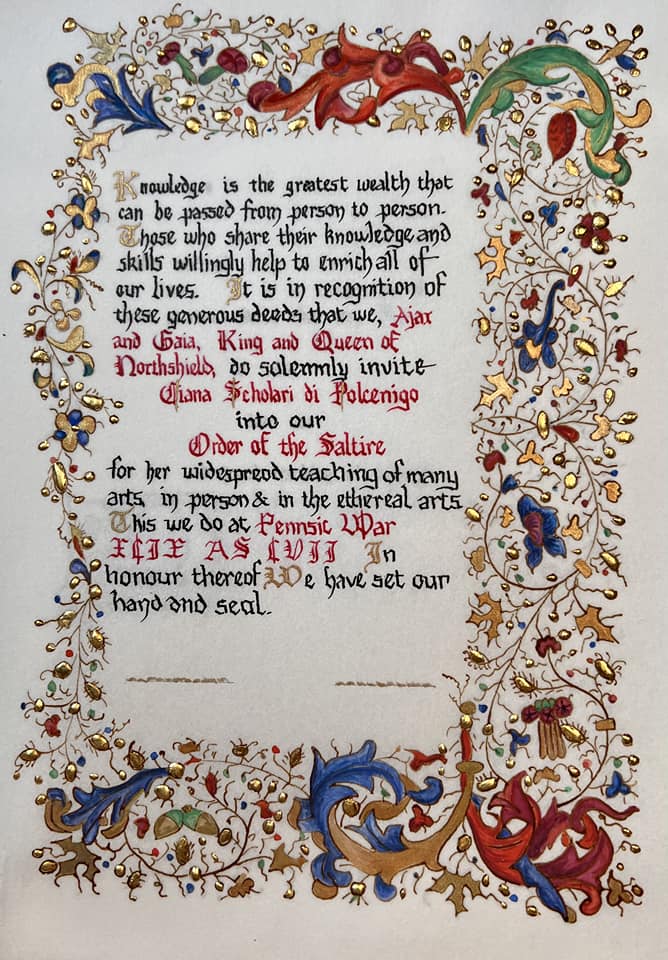 Knowledge is the greatest wealth that
can be passed from person to person.
Those who share their knowledge and
skills willingly help to enrich all of
our lives. It is in recognition of
these generous deeds that we, Ajax
and Gaia, King and Queen of
Northshield, do solemnly invite
Ciana Scholari di Polcenigo
into our
Order of the Saltire
for her widespreod teaching of many
arts, in person & in the ethereal arts
This we do at Pennsic War
XCIX AS LVII In
honour thereof We have set our
hand and seal.